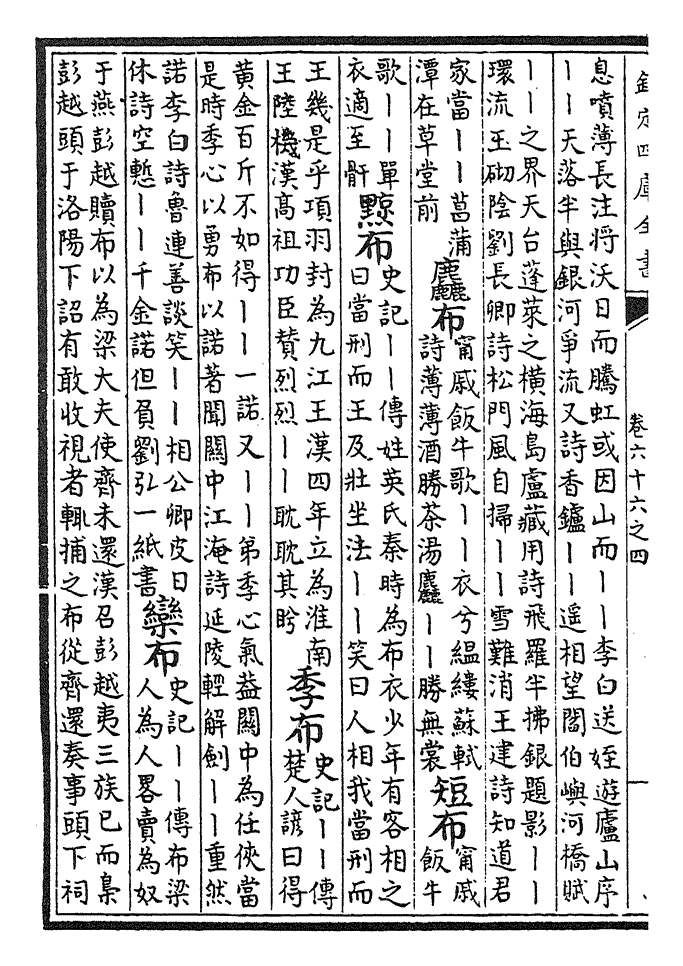 欽定四庫全書 卷六十六之四
息噴薄長注将沃日而騰虹或因山而丨丨李白送姪遊廬山序
丨丨天落半與銀河爭流又詩香鑪丨丨遥相望閻伯嶼河橋賦
丨丨之界天台蓬萊之橫海島盧藏用詩飛羅半拂銀題影丨丨
環流玉砌陰劉長卿詩松門風自掃丨丨雪難消王建詩知道君
家當丨丨菖蒲
潭在草堂前
麤布
甯戚飯牛歌丨丨衣兮緼縷蘇軾
詩薄薄酒勝茶湯麤丨丨勝無裳
短布
甯戚
飯牛
歌丨丨單
衣適至骭
黥布
史記丨丨傳姓英氏秦時為布衣少年有客相之
曰當刑而王及壯坐法丨丨笑曰人相我當刑而
王幾是乎項羽封為九江王漢四年立為淮南
王陸機漢高祖功臣賛烈烈丨丨耽耽其眄
季布
史記丨丨傳
楚人諺曰得
黄金百斤不如得丨丨一諾又丨丨弟季心氣葢關中為任俠當
是時季心以勇布以諾著聞關中江淹詩延陵輕解劍丨丨重然
諾李白詩魯連善談笑丨丨相公卿皮日
休詩空慙丨丨千金諾但負劉弘一紙書
欒布
史記丨丨傳布梁
人為人畧賣為奴
于燕彭越贖布以為梁大夫使齊未還漢召彭越夷三族已而梟
彭越頭于洛陽下詔有敢收視者輙捕之布從齊還奏事頭下祠